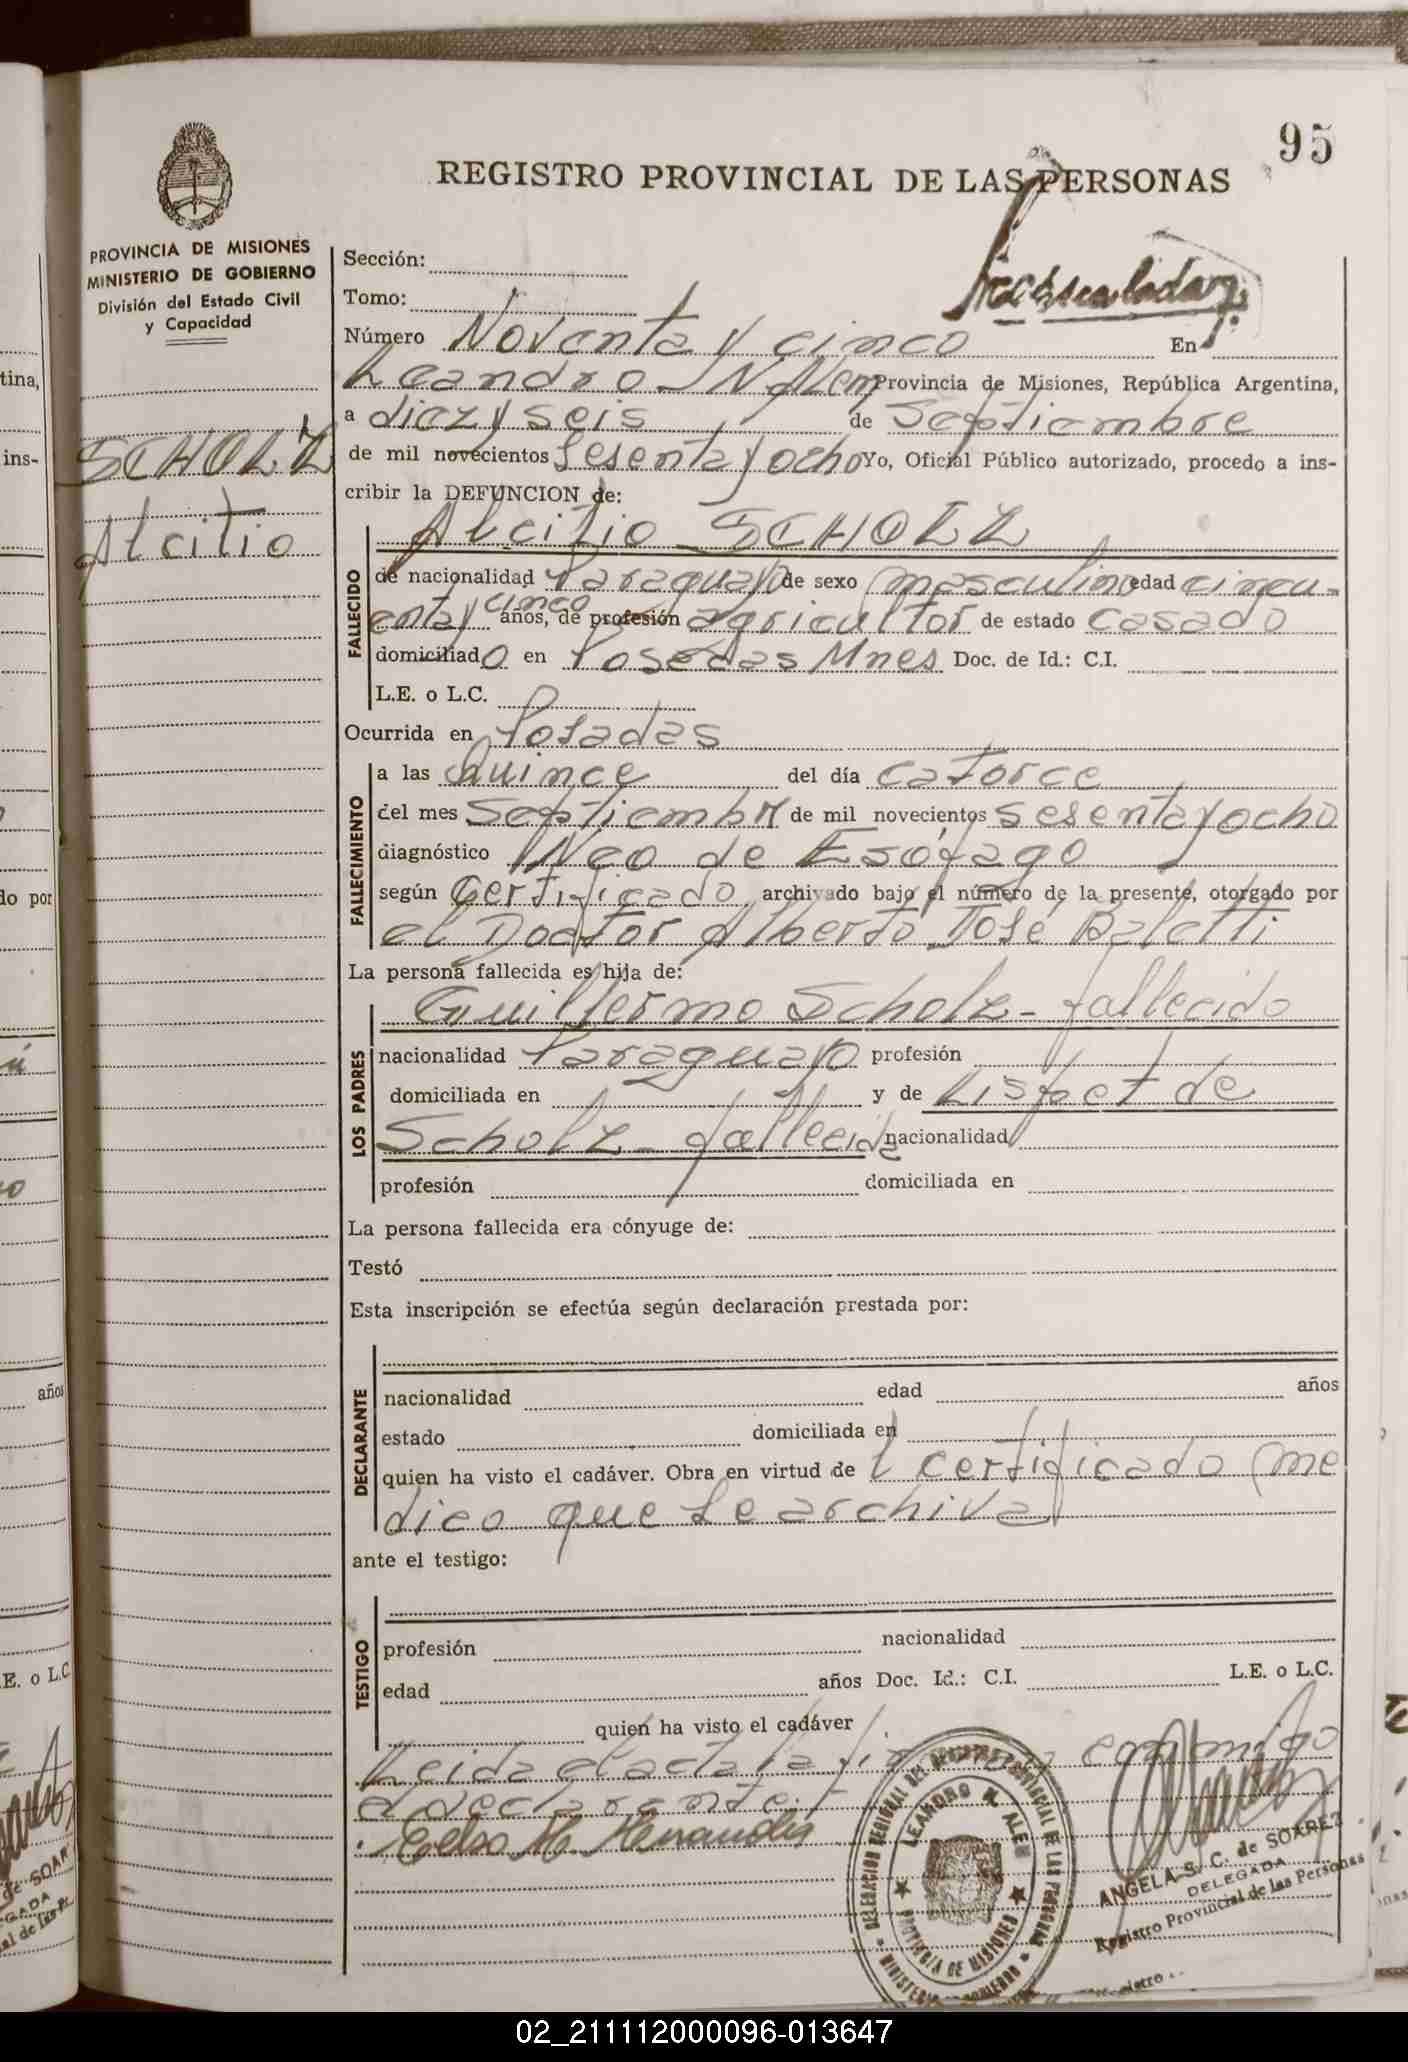 95
REGISTRO PROVINCIAL DE LAS PERSONAS
PROVINCIA DE MISIONES
MINISTERIO DE GOBIERNO
División del Estado Civil
y Capacidad
SCHOLZ
Alcitio
Sección:
Tomo:
Número Noventa y cinco En
Leandro N Alem Provincia de Misiones, República Argentina,
a diez y seis de Septiembre
de mil novecientos sesenta y ocho Yo, Oficial Público autorizado, procedo a ins-
cribir la DEFUNCION de:
FALLECIDO
Alcitio SCHOLZ
de nacionalidad Paraguayo de sexo masculino edad cincu-
enta y cinco años, de profesión agricultor de estado casado
domiciliado en Posadas Mnes Doc. de Id.: C.I.
L.E. o L.C.
Ocurrida en Posadas
FALLECIMIENTO
a las Quince del día catorce
del mes Septiembre de mil novecientos sesenta y ocho
diagnóstico Neo de Esófago
según Certificado archivado bajo el número de la presente, otorgado por
el Doctor Alberto José Baletti
La persona fallecida es hija de:
LOS PADRES
Guillermo Scholz - fallecido
nacionalidad Paraguayo profesión
domiciliada en y de Lispet de
Scholz - fallecida nacionalidad
profesión domiciliada en
La persona fallecida era cónyuge de:
Testó
Esta inscripción se efectúa según declaración prestada por:
DECLARANTE
nacionalidad edad años
estado domiciliada en
quien ha visto el cadáver. Obra en virtud de l certificado me
dico que se archiva
ante el testigo:
TESTIGO
profesión nacionalidad
edad años Doc. Id.: C.I. L.E. o L.C.
quien ha visto el cadáver
Leida el acta la conmigo
el declarante.
Celso M. Hernandez
LEANDRO N. ALEM
PROVINCIA DE MISIONES
ANGELA S. C. de SOAREZ
DELEGADA
Registro Provincial de las Personas
02_211112000096-013647